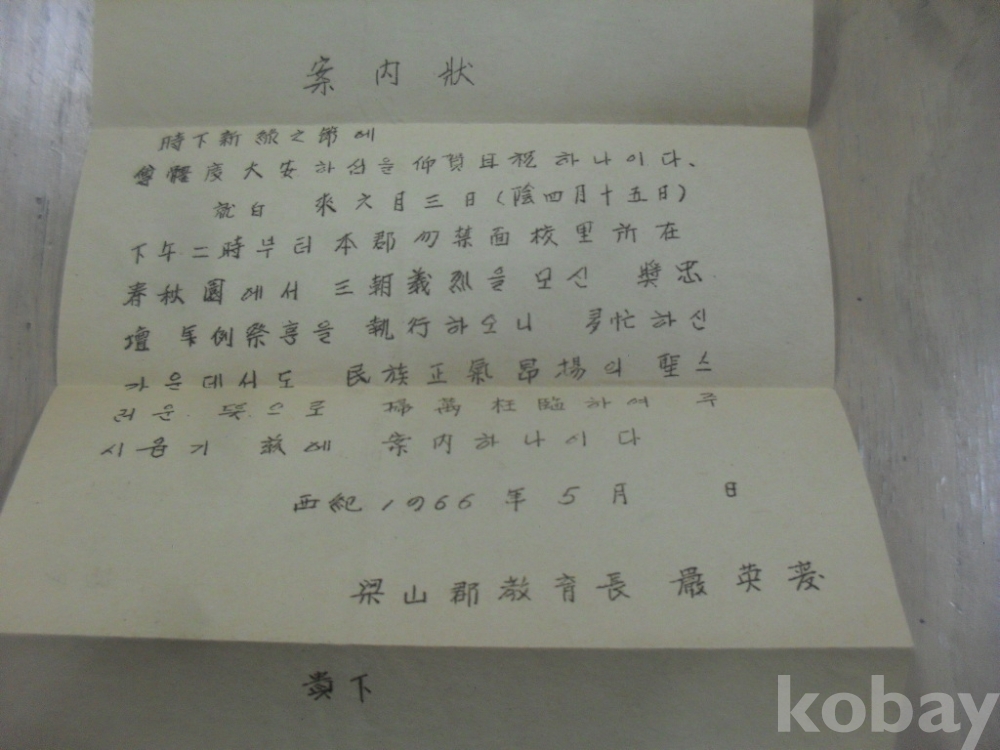 案內狀
時下新綠之節에
尊體度大安하심을 仰賀且祝하나이다.
就白 來六月三日(陰四月十五日)
下午二時부터 本郡勿禁面校里所在
春秋園에서 三朝義烈을 모신 奬忠
壇 年例祭享을 執行하오니 多忙하신
가운데서도 民族正氣昂揚의 聖스
러운 뜻으로 掃萬枉臨하여 주
시옵기 玆에 案內하나이다
西紀 1966年 5月 日
梁山郡敎育長 嚴英
貴下
kobay